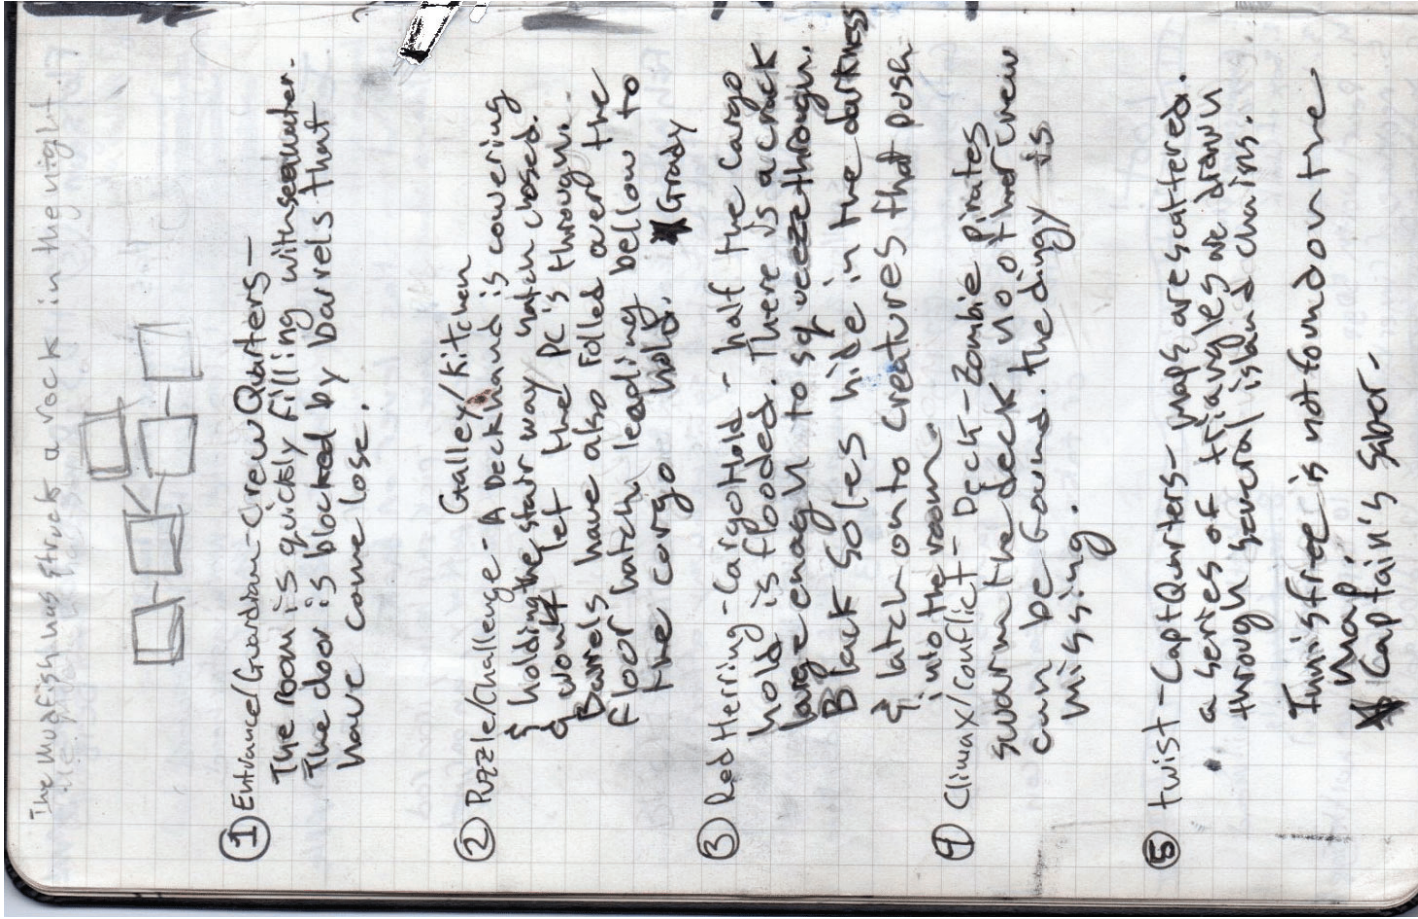 The Mudfish has struck a rock in the night
① Entrance/Guardian-Crew Quarters-
The room is quickly filling with seawater.
The door is blocked by barrels that
have come lose.
Galley/Kitchen
② Puzzle/Challenge - A Deckhand is cowering
& holding the stair way hatch closed.
& won't let the PC's through.
Barrels have also rolled over the
floor hatch leading bellow to
the cargo hold. Grady
③ Red Herring - Cargo Hold - half the cargo
hold is flooded. There is a crack
large enough to squeeze through.
Black Soles hide in the darkness
& latch onto creatures that push
into the room.
④ Climax/Conflict - Deck - Zombie pirates
swarm the deck no other crew
can be found. the dingy is
missing.
⑤ twist - Capt Quarters - Maps are scattered.
a series of triangles are drawn
through several island chains.
Innisfree is not found on the
map.
Captain's Saber-